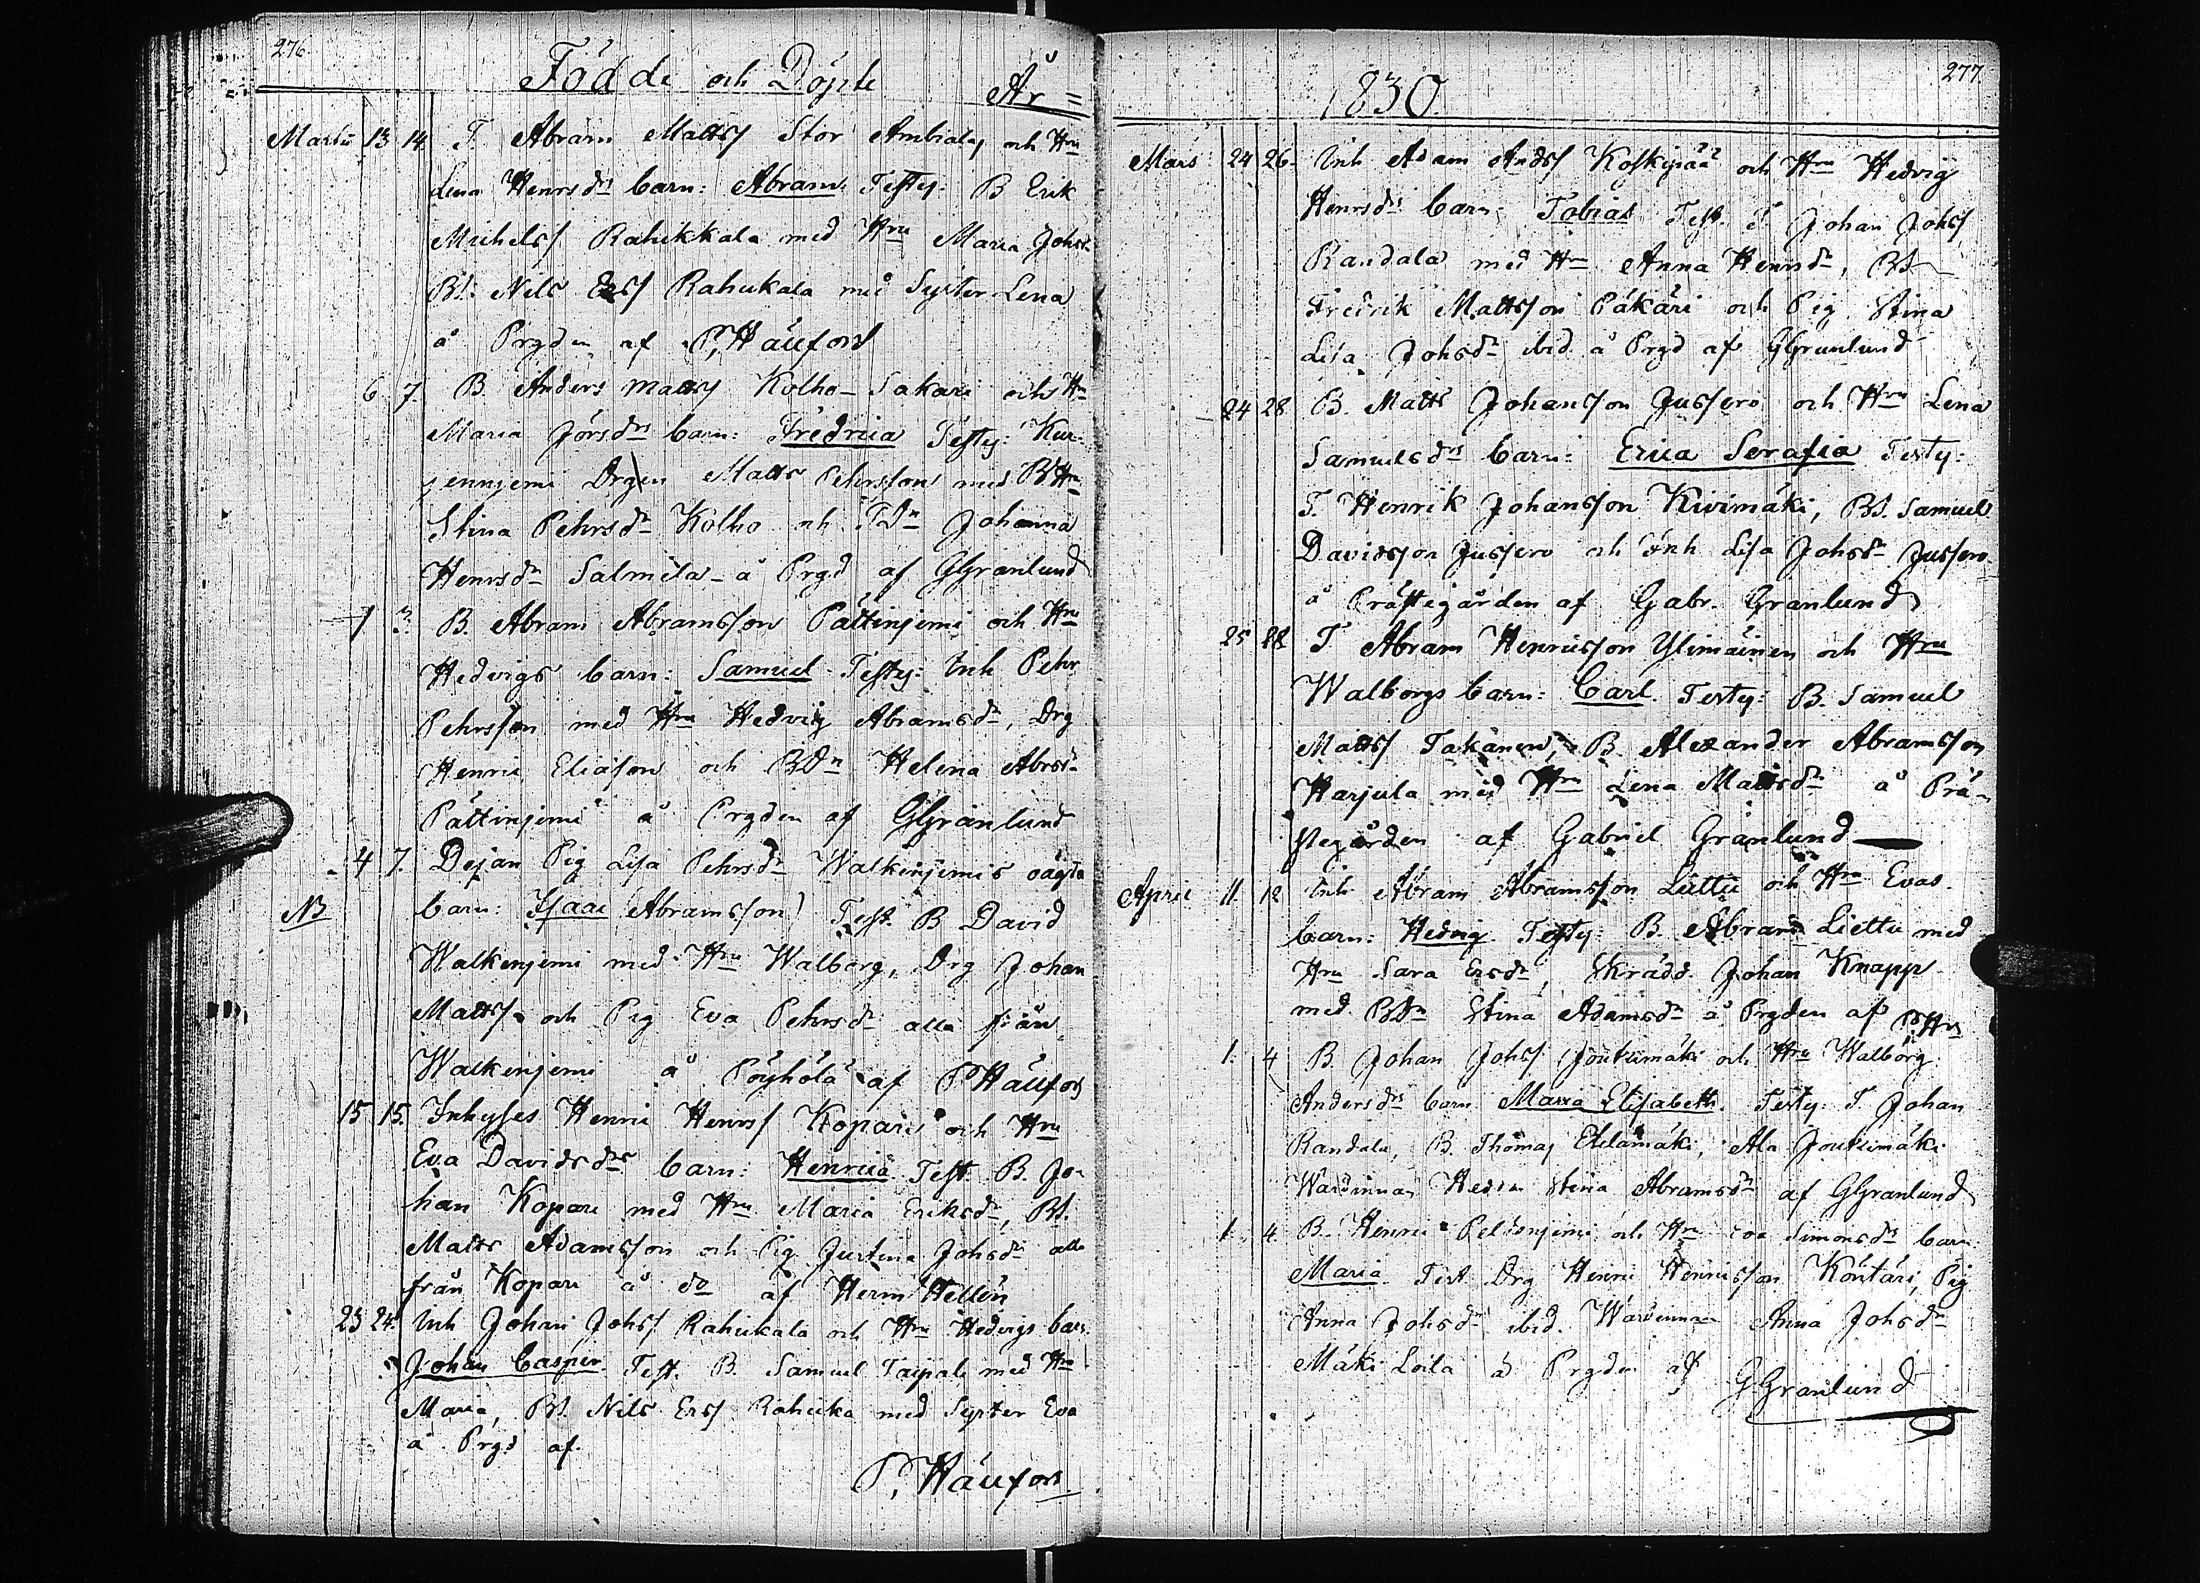 276.
Födde och Döpte År=
Martii 13 14 T. Abram Mattss Stor Ambiala och Hru
Lena Henrsdrs barn: Abram. Testes: B Erik
Michelss Rahikkala med Hru Maria Johsd
BS. Nils Erss Rahikkala med Syster Lena
å Prgden af P, Häufors
6 7. B. Anders Mattss Kolho-Sakari och Hru
Maria Jörsdrs barn: Fredrica Testes: Kur-
jenniemi Drgen Matts Pehrsson med BHru
Stina Pehrsdr Kolho och TDr Johanna
Henrsdr Salmela å Prgd af GGranlund
1 3. B. Abram Abramsson Pättiniemi och Hru
Hedvigs barn: Samuel Testes: Inh Pehr
Pehrsson med Hru Hedvig Abramsdr, Drg
Henric Eliasson och BDr Helena Abrsdr
Pättiniemi å Prgden af GGranlund
4 7. Dejan Pig Lisa Pehrsdr Walkeniemis oägta
NB barn: Isaac (Abramsson) Test. B David
Walkeniemi med Hru Walborg, Drg Johan
Mattss och Pig Eva Pehrsdr alla från
Walkeniemi å Pöyhölä af P Häufors
15 15. Inhyses Henric Henrss Kopari och Hru
Eva Davidsdrs barn: Henrica Test. B. Jo-
han Kopari med Hru Maria Eriksdr, BS.
Matts Adamsson och Pig Justina Johsdr alla
från Kopari å do af Herm Hellén
23 24. Inh Johan Johss Rahikkala och Hru Hedvigs barn
Johan Casper. Test. B. Samuel Taipale med Hru
Maria, BS. Nils Erss Rahikka med Syster Eva
å Prgd af
P, Häufors
277.
1830.
Mars 24 26. Inh Adam Andss Koskipää och Hru Hedvig
Henrsdrs barn: Tobias Test. T Johan Johss
Randala med Hru Anna Henrsdr, BS
Fredrik Mattsson Päkäri och Pig Stina
Lisa Johsdr ibid å Prgd af GGranlund
24 28 B. Matts Johansson Jussero och Hru Lena
Samuelsdrs barn: Erica Serafia Testy:
T. Henrik Johansson Kivimäki, BS. Samuel
Davidsson Jussero och Inh Lisa Johsdr Jussero
å Prästegården af Gabr. Granlund
25 28 T Abram Henricsson Ylimäinen och Hru
Walborgs barn: Carl. Testy: B. Samuel
Mattss Takanen, B. Alexander Abramsson
Harjula med Hru Lena Mattsdr å Prä-
stegården af Gabriel Granlund
April 11. 12 Inh Abram Abramsson Liettu och Hru Evas
barn: Hedvig Testy: B. Abram Liettu med
Hru Sara Ersdr, Skrädd. Johan Knapp
med BDr Stina Adamsdr å Prgden af PHrs
1. 4 B. Johan Johss Joutsimäki och Hru Walborg
Andersdrs barn Maria Elisabeth. Testy: T. Johan
Randala, B. Thomas Etelämäki, Ala Joutsimäki
Wärdinnan Stina Abramsdr af GGranlund
1. 4 B. Henric Peltoniemi och Hru Eva Simonsdrs barn
Maria. Test Drg Henric Henricsson Köntäri, Pig
Anna Johsdr ibid. Wärdinnan Anna Johsdr
Mäki Loila å Prgden af
G.Granlund